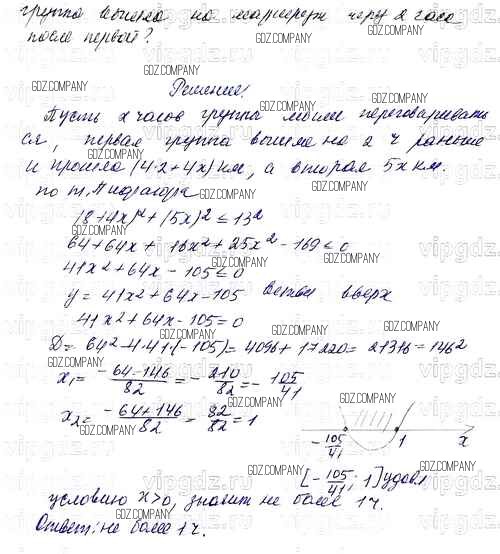 группа вышла на маршрут через 2 часа
после первой?
GDZ.COMPANY
Решение:
Пусть x часов группа могли переговаривать
ся, первая группа вышла на 2 ч раньше
и прошла (4·2+4x) км, а вторая 5x км.
по т. Пифагора
(8+4x)²+(5x)² ≤ 13²
64+64x+16x²+25x²-169 ≤ 0
41x²+64x-105 ≤ 0
y = 41x²+64x-105 ветви вверх
41x²+64x-105=0
D = 64²-4·41·(-105) = 4096+17220 = 21316 = 146²
x₁ = (-64-146)/82 = -210/82 = -105/41
x₂ = (-64+146)/82 = 82/82 = 1
-105/41 1 x
[-105/41; 1] удовл
условию x>0, значит не более 1 ч.
Ответ: не более 1 ч.
vipgdz.com